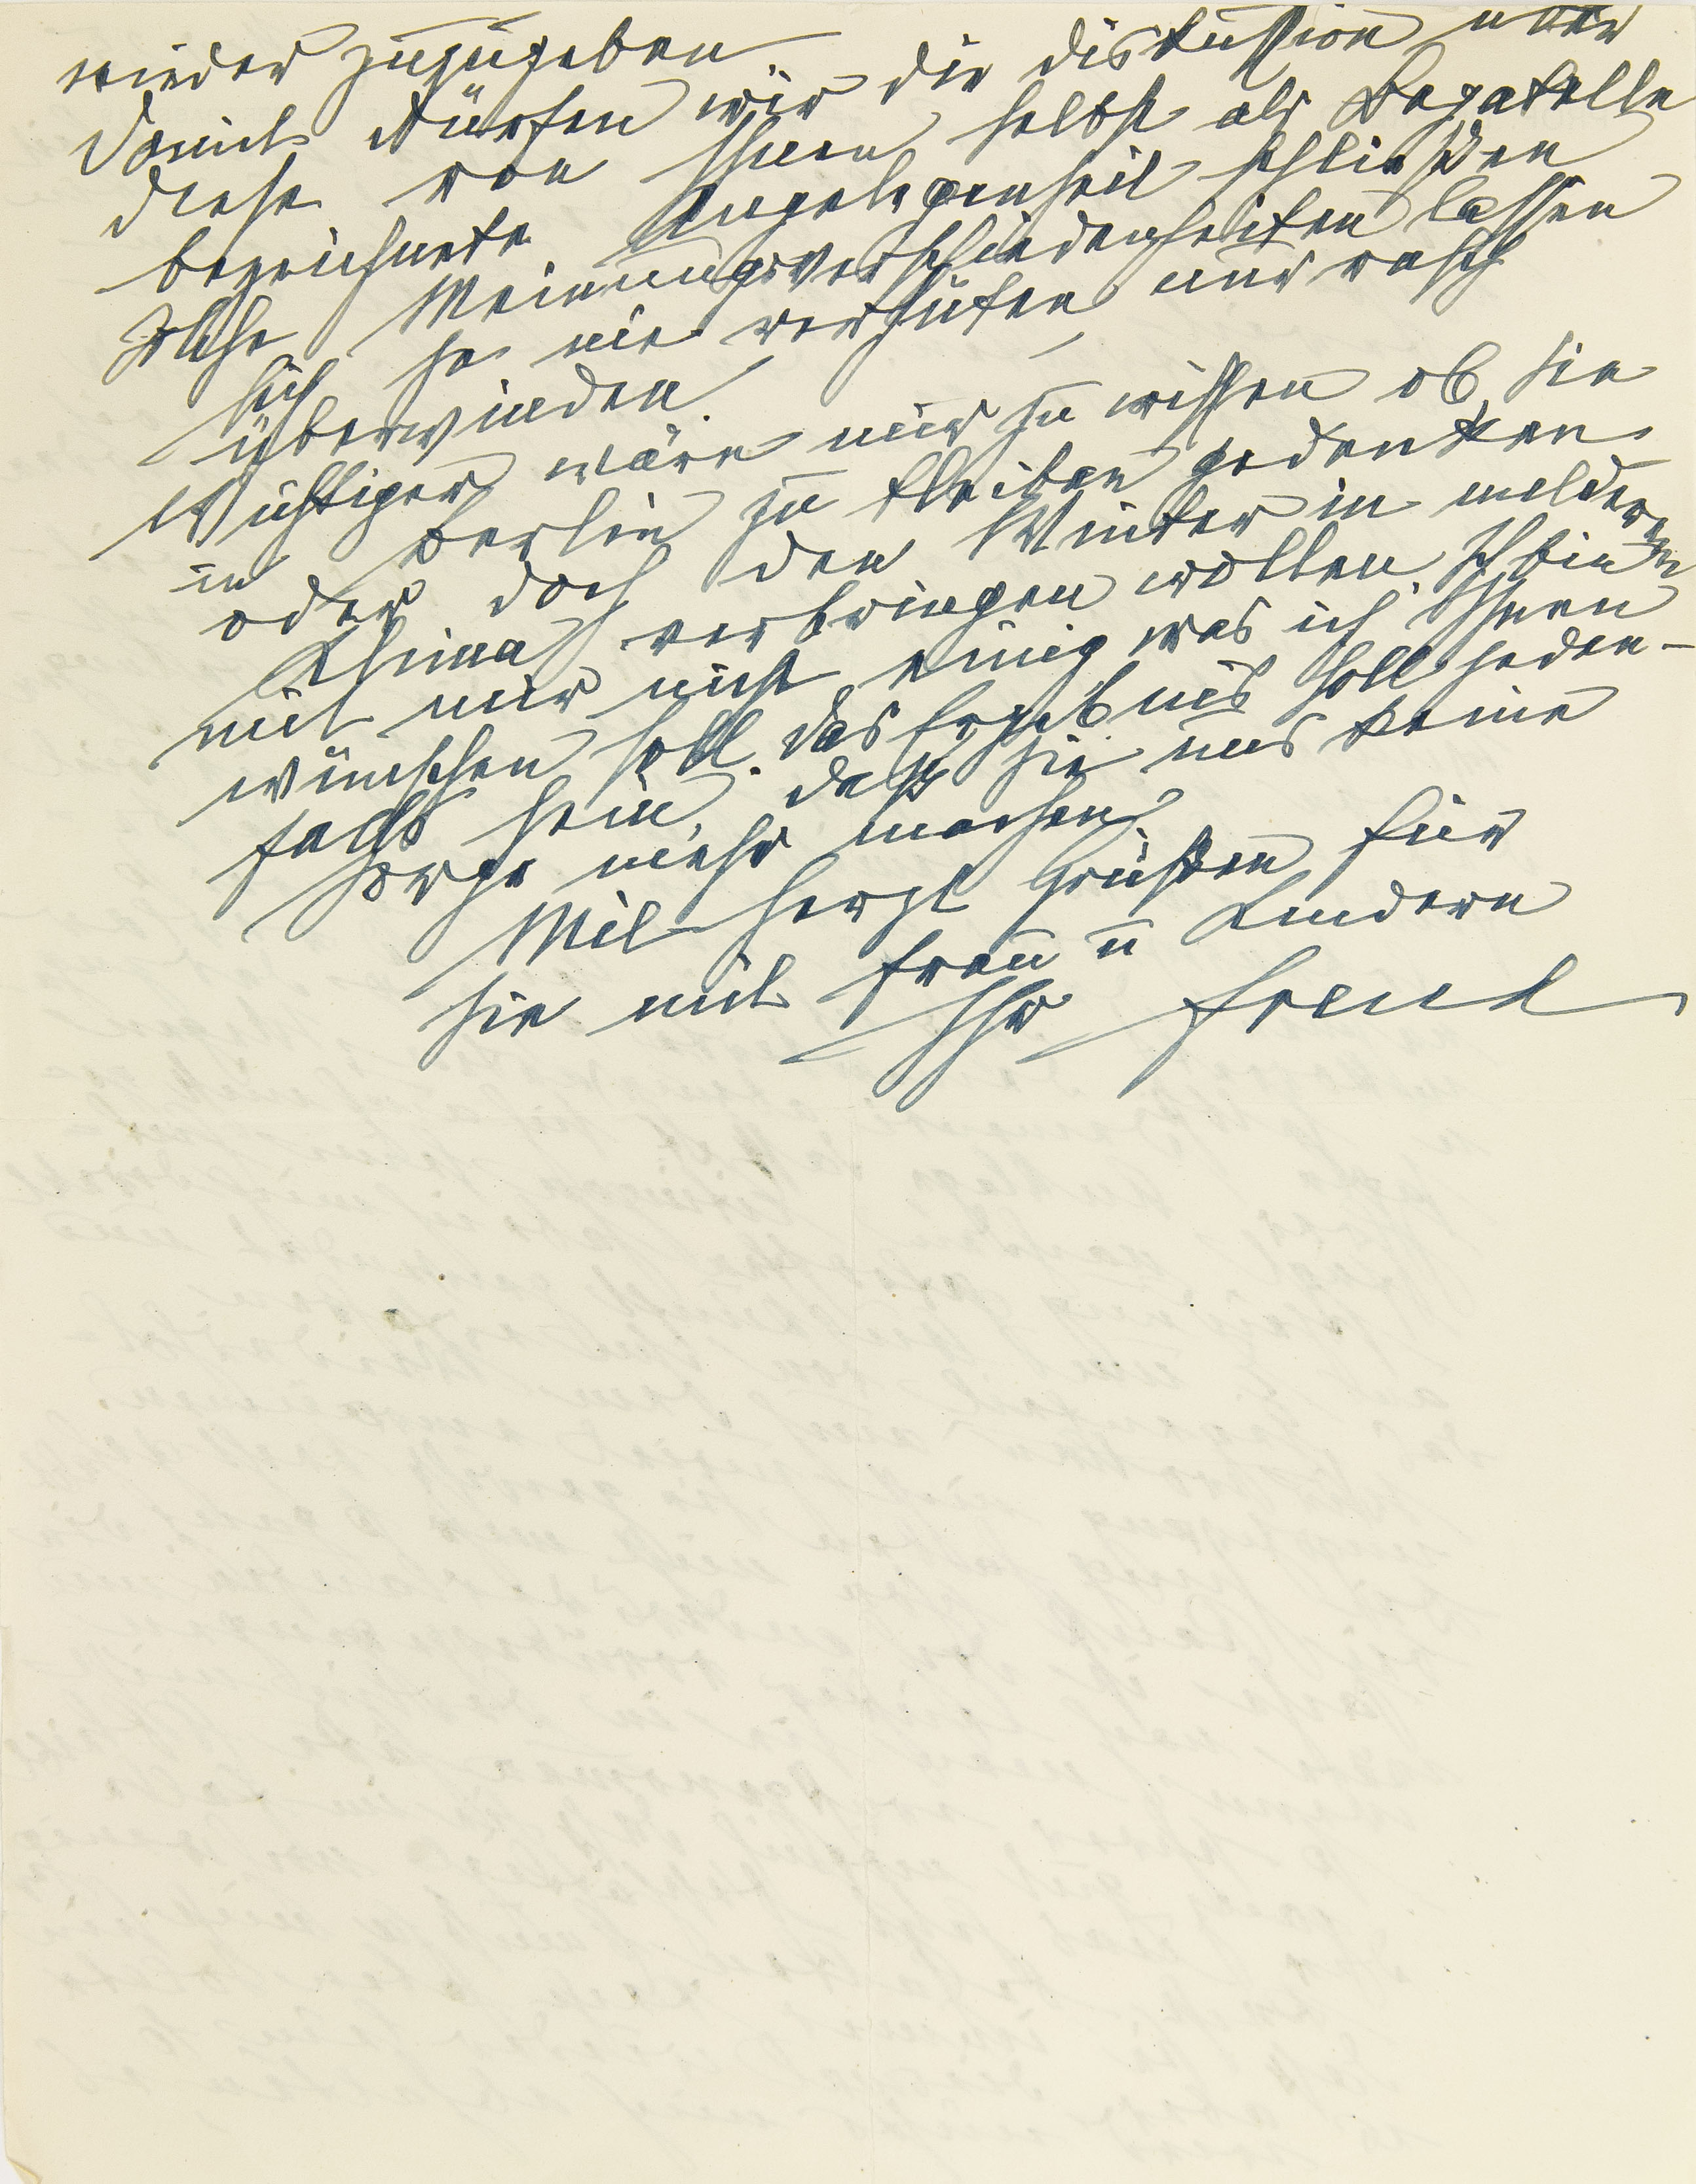 wieder zuzugeben.
Damit dürfen wir die Diskussion über
diese von Ihnen selbst als Bagatelle
bezeichnete Angelegenheit schließen
Solche Meinungsverschiedenheiten lassen
sich ja nie verhüten, nur rasch
überwinden.
Wichtiger wäre mir zu wissen ob Sie
in Berlin zu bleiben gedenken
oder doch den Winter in milderem
Klima verbringen wollen. Ich bin
mit mir nicht einig was ich Ihnen
wünschen soll. Das Ergebnis soll jeden-
falls sein, daß Sie uns keine
Sorge mehr machen
Mit herzl Grüßen für
Sie mit Frau u Kindern
Ihr Freud